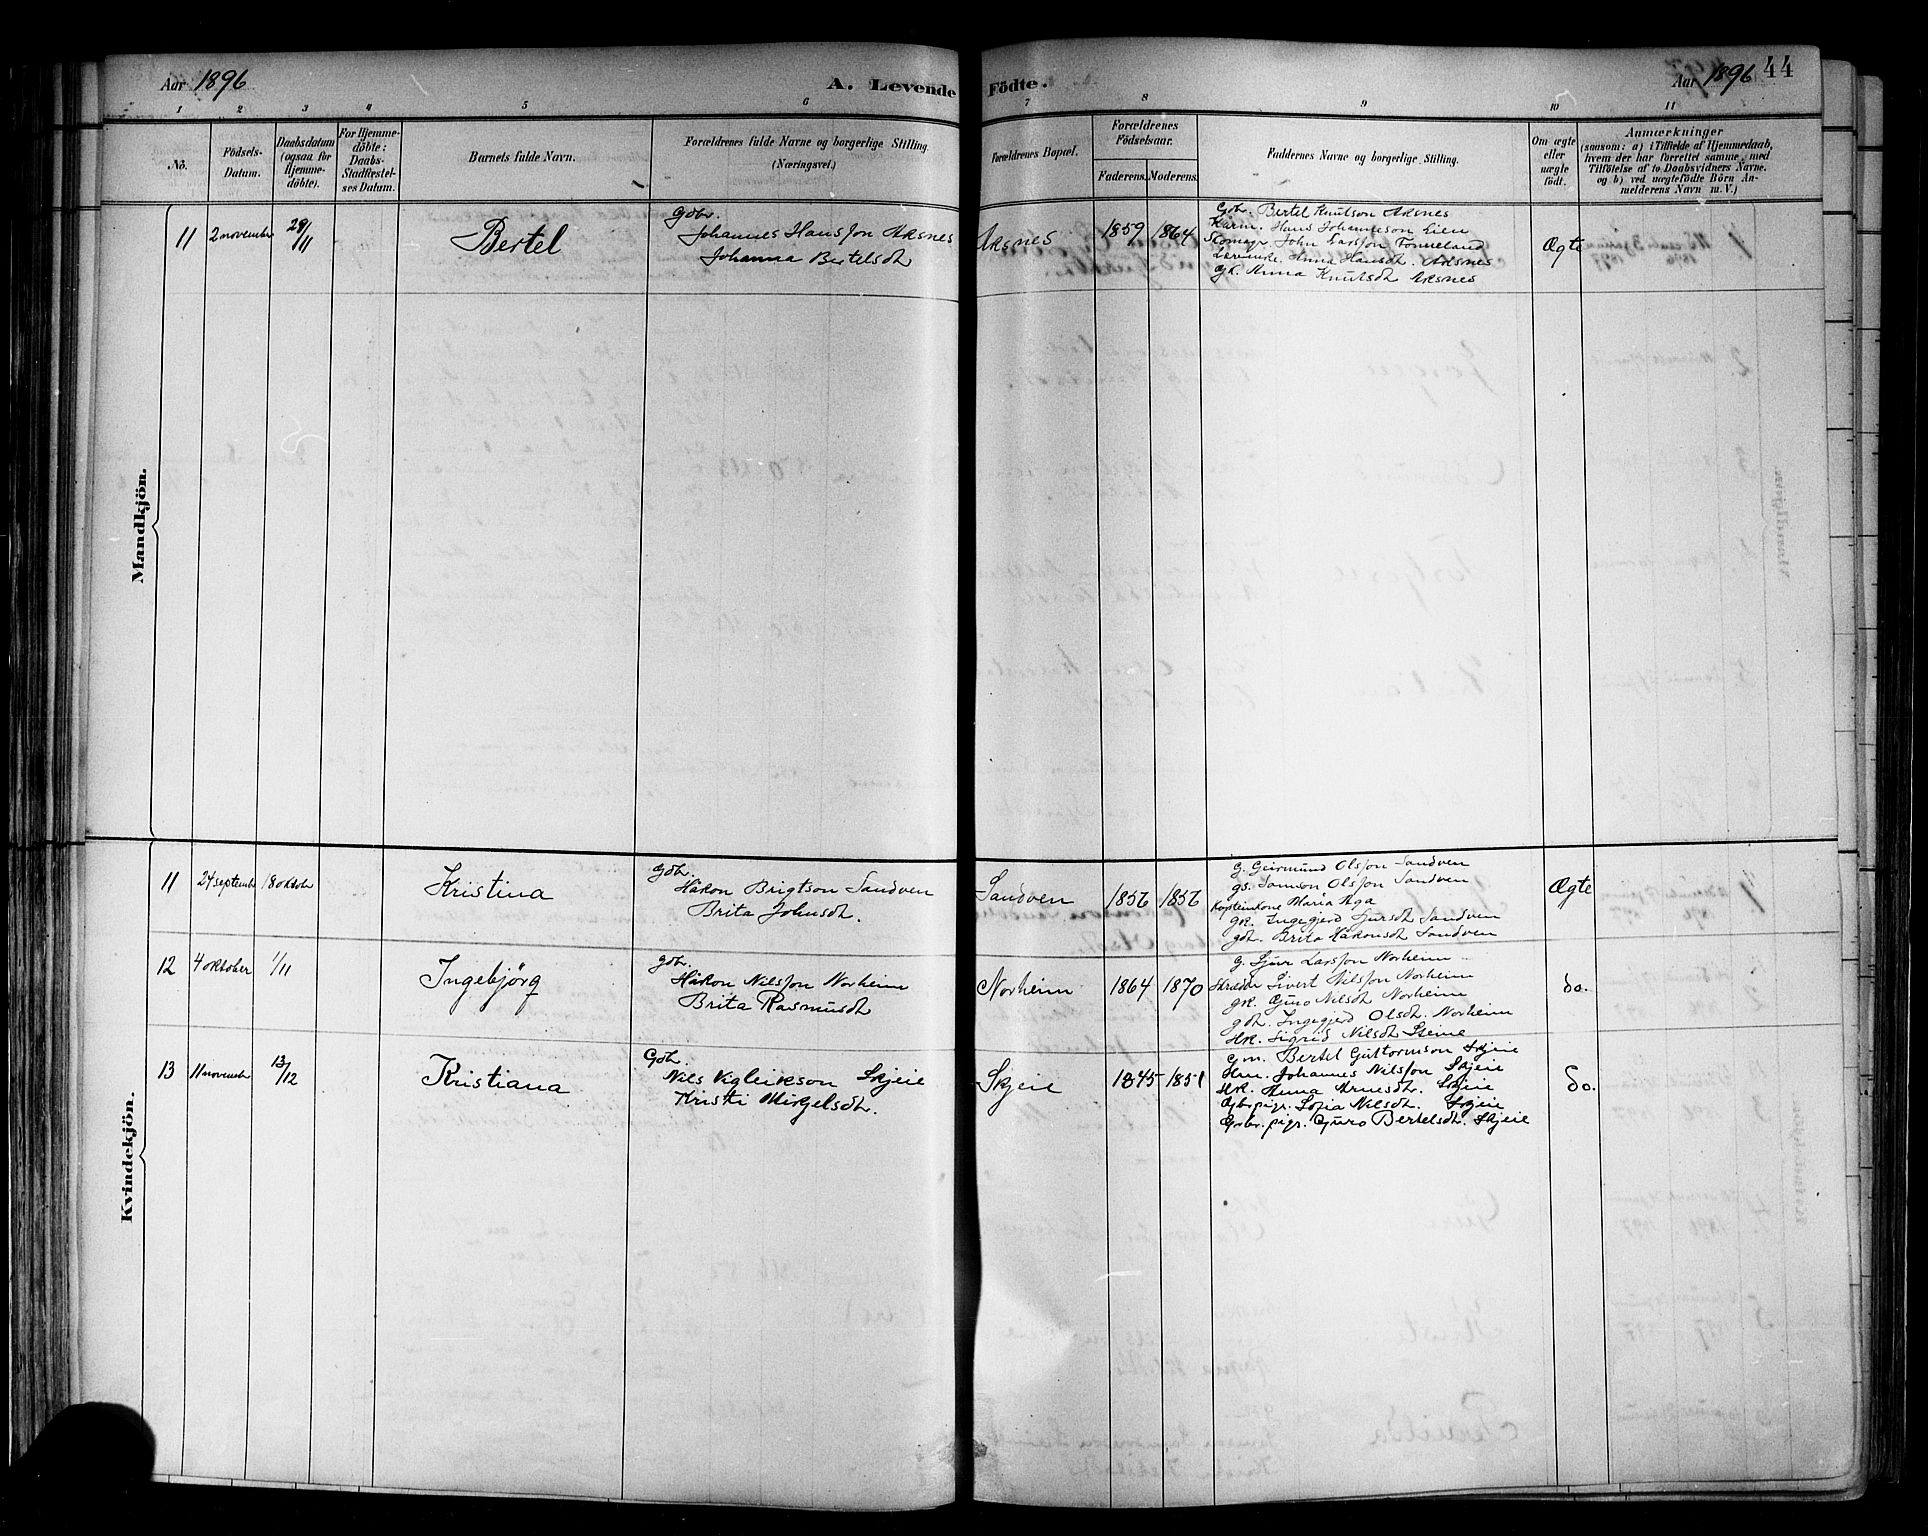 Aar 1896
A. Levende Födte.
Aar 1896 44
1 2 3 4 5 6 7 8 9 10 11
No.
Födsels-Datum.
Daabsdatum (ogsaa for Hjemme-döbte).
For Hjemme-döbte: Daabs-Stadfæstel-ses Datum.
Barnets fulde Navn.
Forældrenes fulde Navne og borgerlige Stilling. (Næringsvei.)
Forældrenes Bopæl.
Forældrenes Födselsaar.
Faderens. Moderens.
Faddernes Navne og borgerlige Stilling.
Om ægte eller uægte födt.
Anmærkninger
(saasom: a) i Tilfælde af Hjemmedaab, hvem der har forrettet samme, med Tilföielse af to Daabsvidners Navne, og b) ved uægtefödte Börn An-melderens Navn m. V.)
Mandkjön.
11 2 november 29/11 Bertel
Gdbr.
Johannes Hansson Aksnes
Johanna Bertelsdt
Aksnes 1859 1864
Gbr. Bertel Knutson Aksnes
Karm. Hans Johanneson Eilen
Skomagr. John Larsson Tonneland
Anna Hansdt. Aksnes
gk. Anna Knutsdt Aksnes
Ægte
Kvindekjön.
11 24 september 18 oktobr Kristina
Gdbr.
Håkon Brigtson Sandven
Brita Johnsdt.
Sandven 1856 1856
G. Geirmund Olsson Sandven
gs. Samson Olsson Sandven
Kapteinkone Maria Aga
gk. Ingegjerd Sjursdt Sandven
gdt. Brita Håkonsdt Sandven
Ægte
12 4 oktober 1/11 Ingebjörg
gdbr.
Håkon Nilsson Norheim
Brita Rasmusdt
Norheim 1864 1870
G. Sjur Larsson Norheim
Skrædder Sivert Nilsson Norheim
gk. Guro Nilsdt Norheim
gdt. Ingegjerd Olsdt. Norheim
Hk. Sigrid Nilsdt Steine
do.
13 11 november 13/12 Kristiana
Gdb.
Nils Vigleikson Skjeie
Kristi Mikjelsdt.
Skjeie 1845 1851
Gm. Bertel Guttormson Skjeie
Hm. Johannes Nilsson Skjeie
Hk. Anna Arnesdt. Skjeie
Gbr. pige. Sofia Nilsdt. Skjeie
Grbr. pige. Guro Bertelsdt. Skjeie
do.